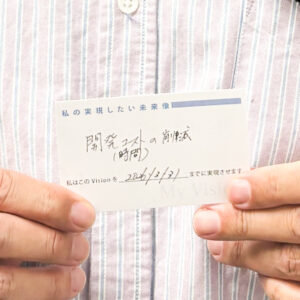 私の実現したい未来像
開発コストの削減
(時間)
私はこのVisionを 2026/12/31 までに実現させます
My Vision